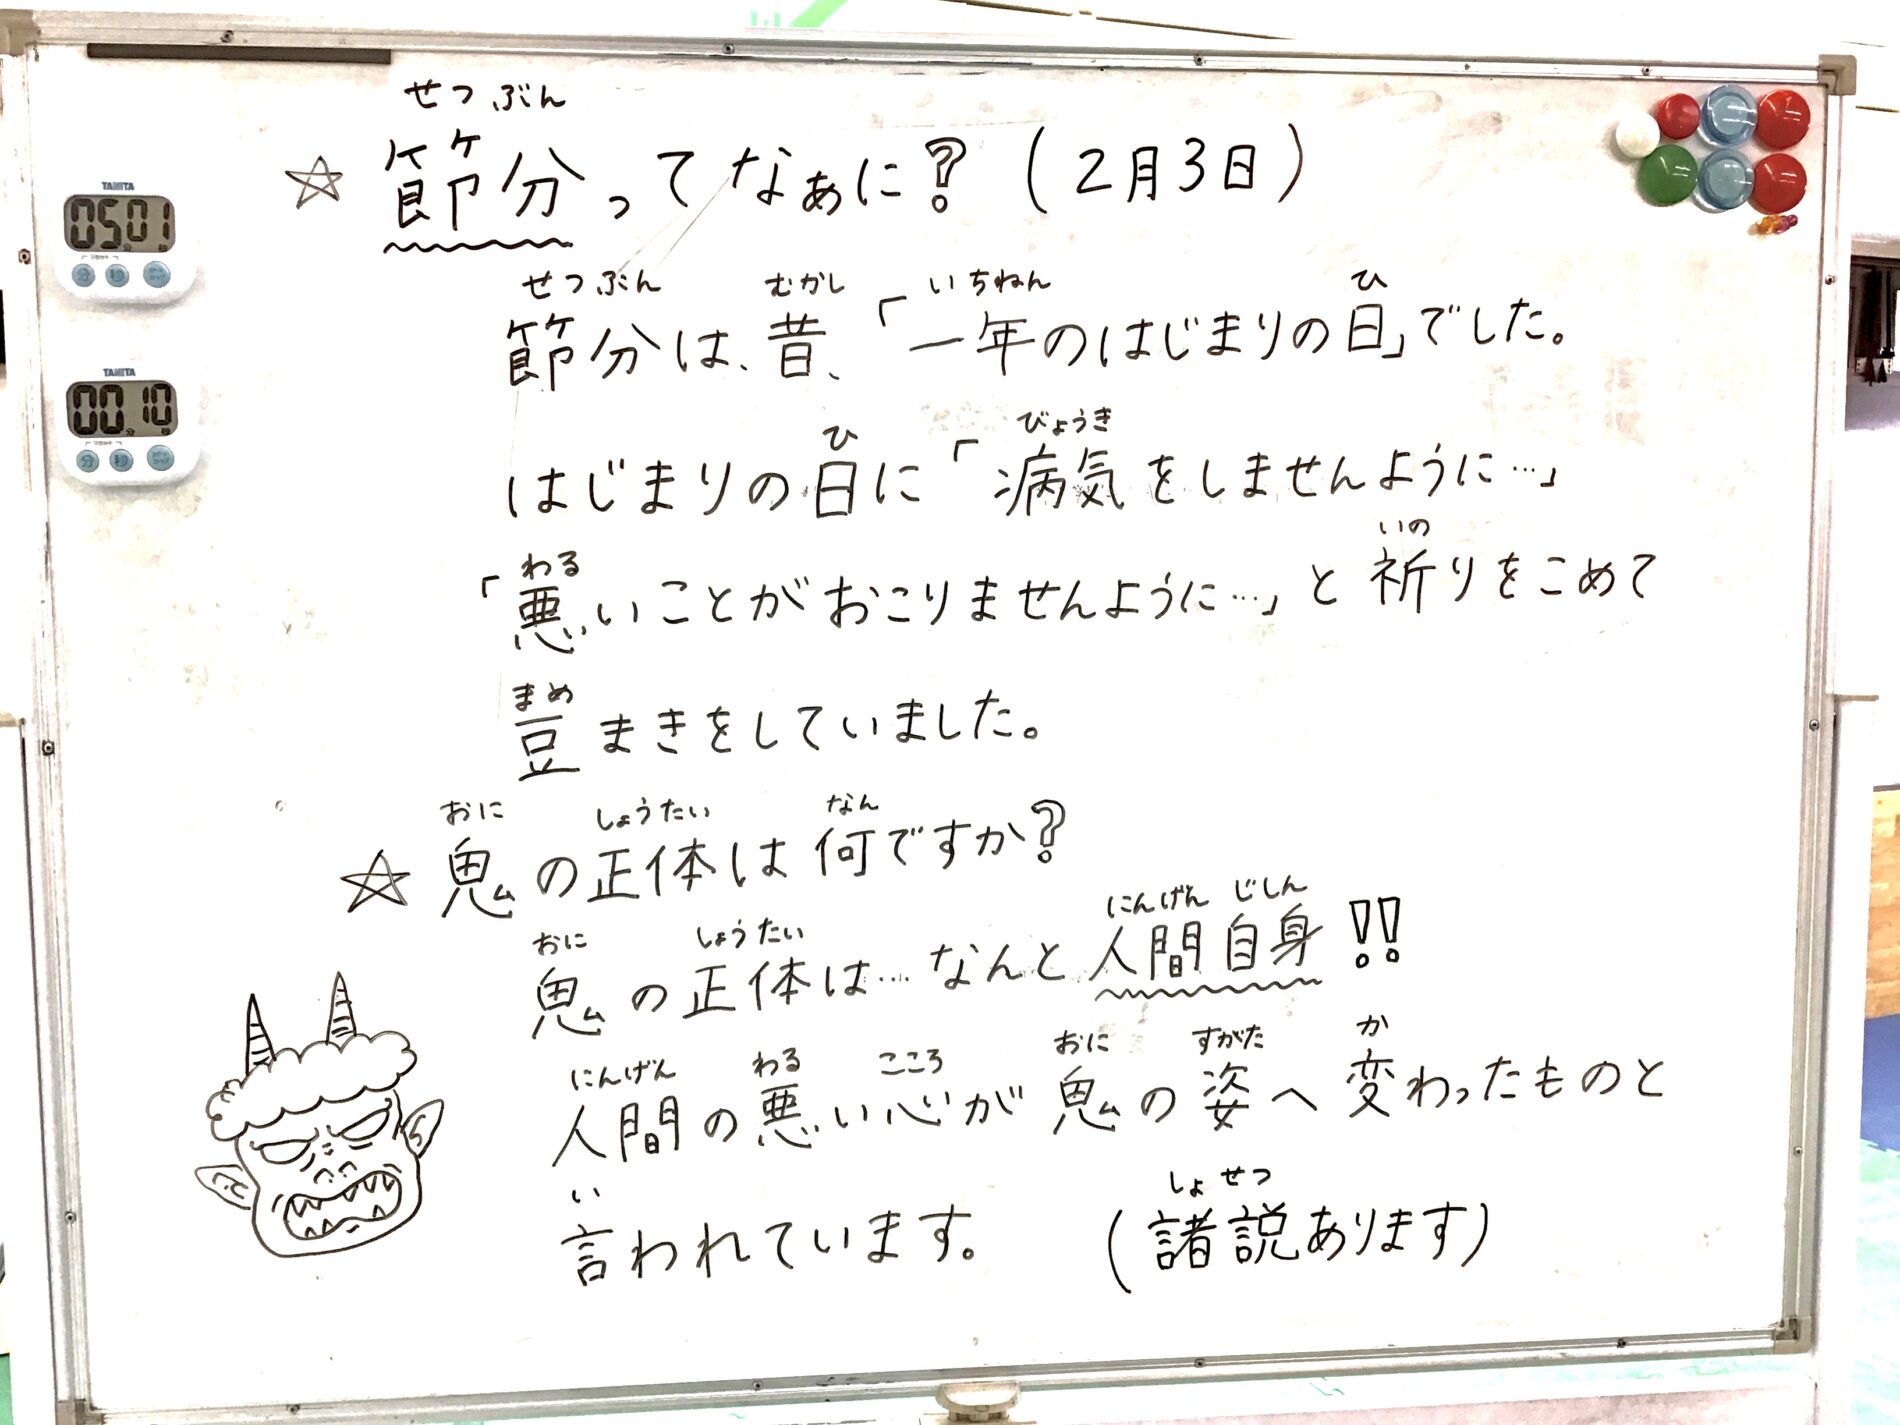 TANITA
05 01
分 秒
TANITA
00 10
分 秒
せつ ぶん
☆ 節分ってなぁに？(2月3日)
せつ ぶん むかし いちねん ひ
節分は、昔、「一年のはじまりの日」でした。
ひ びょうき
はじまりの日に「病気をしませんように…」
わる いの
「悪いことがおこりませんように…」と祈りをこめて
まめ
豆まきをしていました。
おに しょうたい なん
☆ 鬼の正体は何ですか？
おに しょうたい にんげん じしん
鬼の正体は…なんと人間自身!!
にんげん わる こころ おに すがた か
人間の悪い心が鬼の姿へ変わったものと
い しょ せつ
言われています。 (諸説あります)